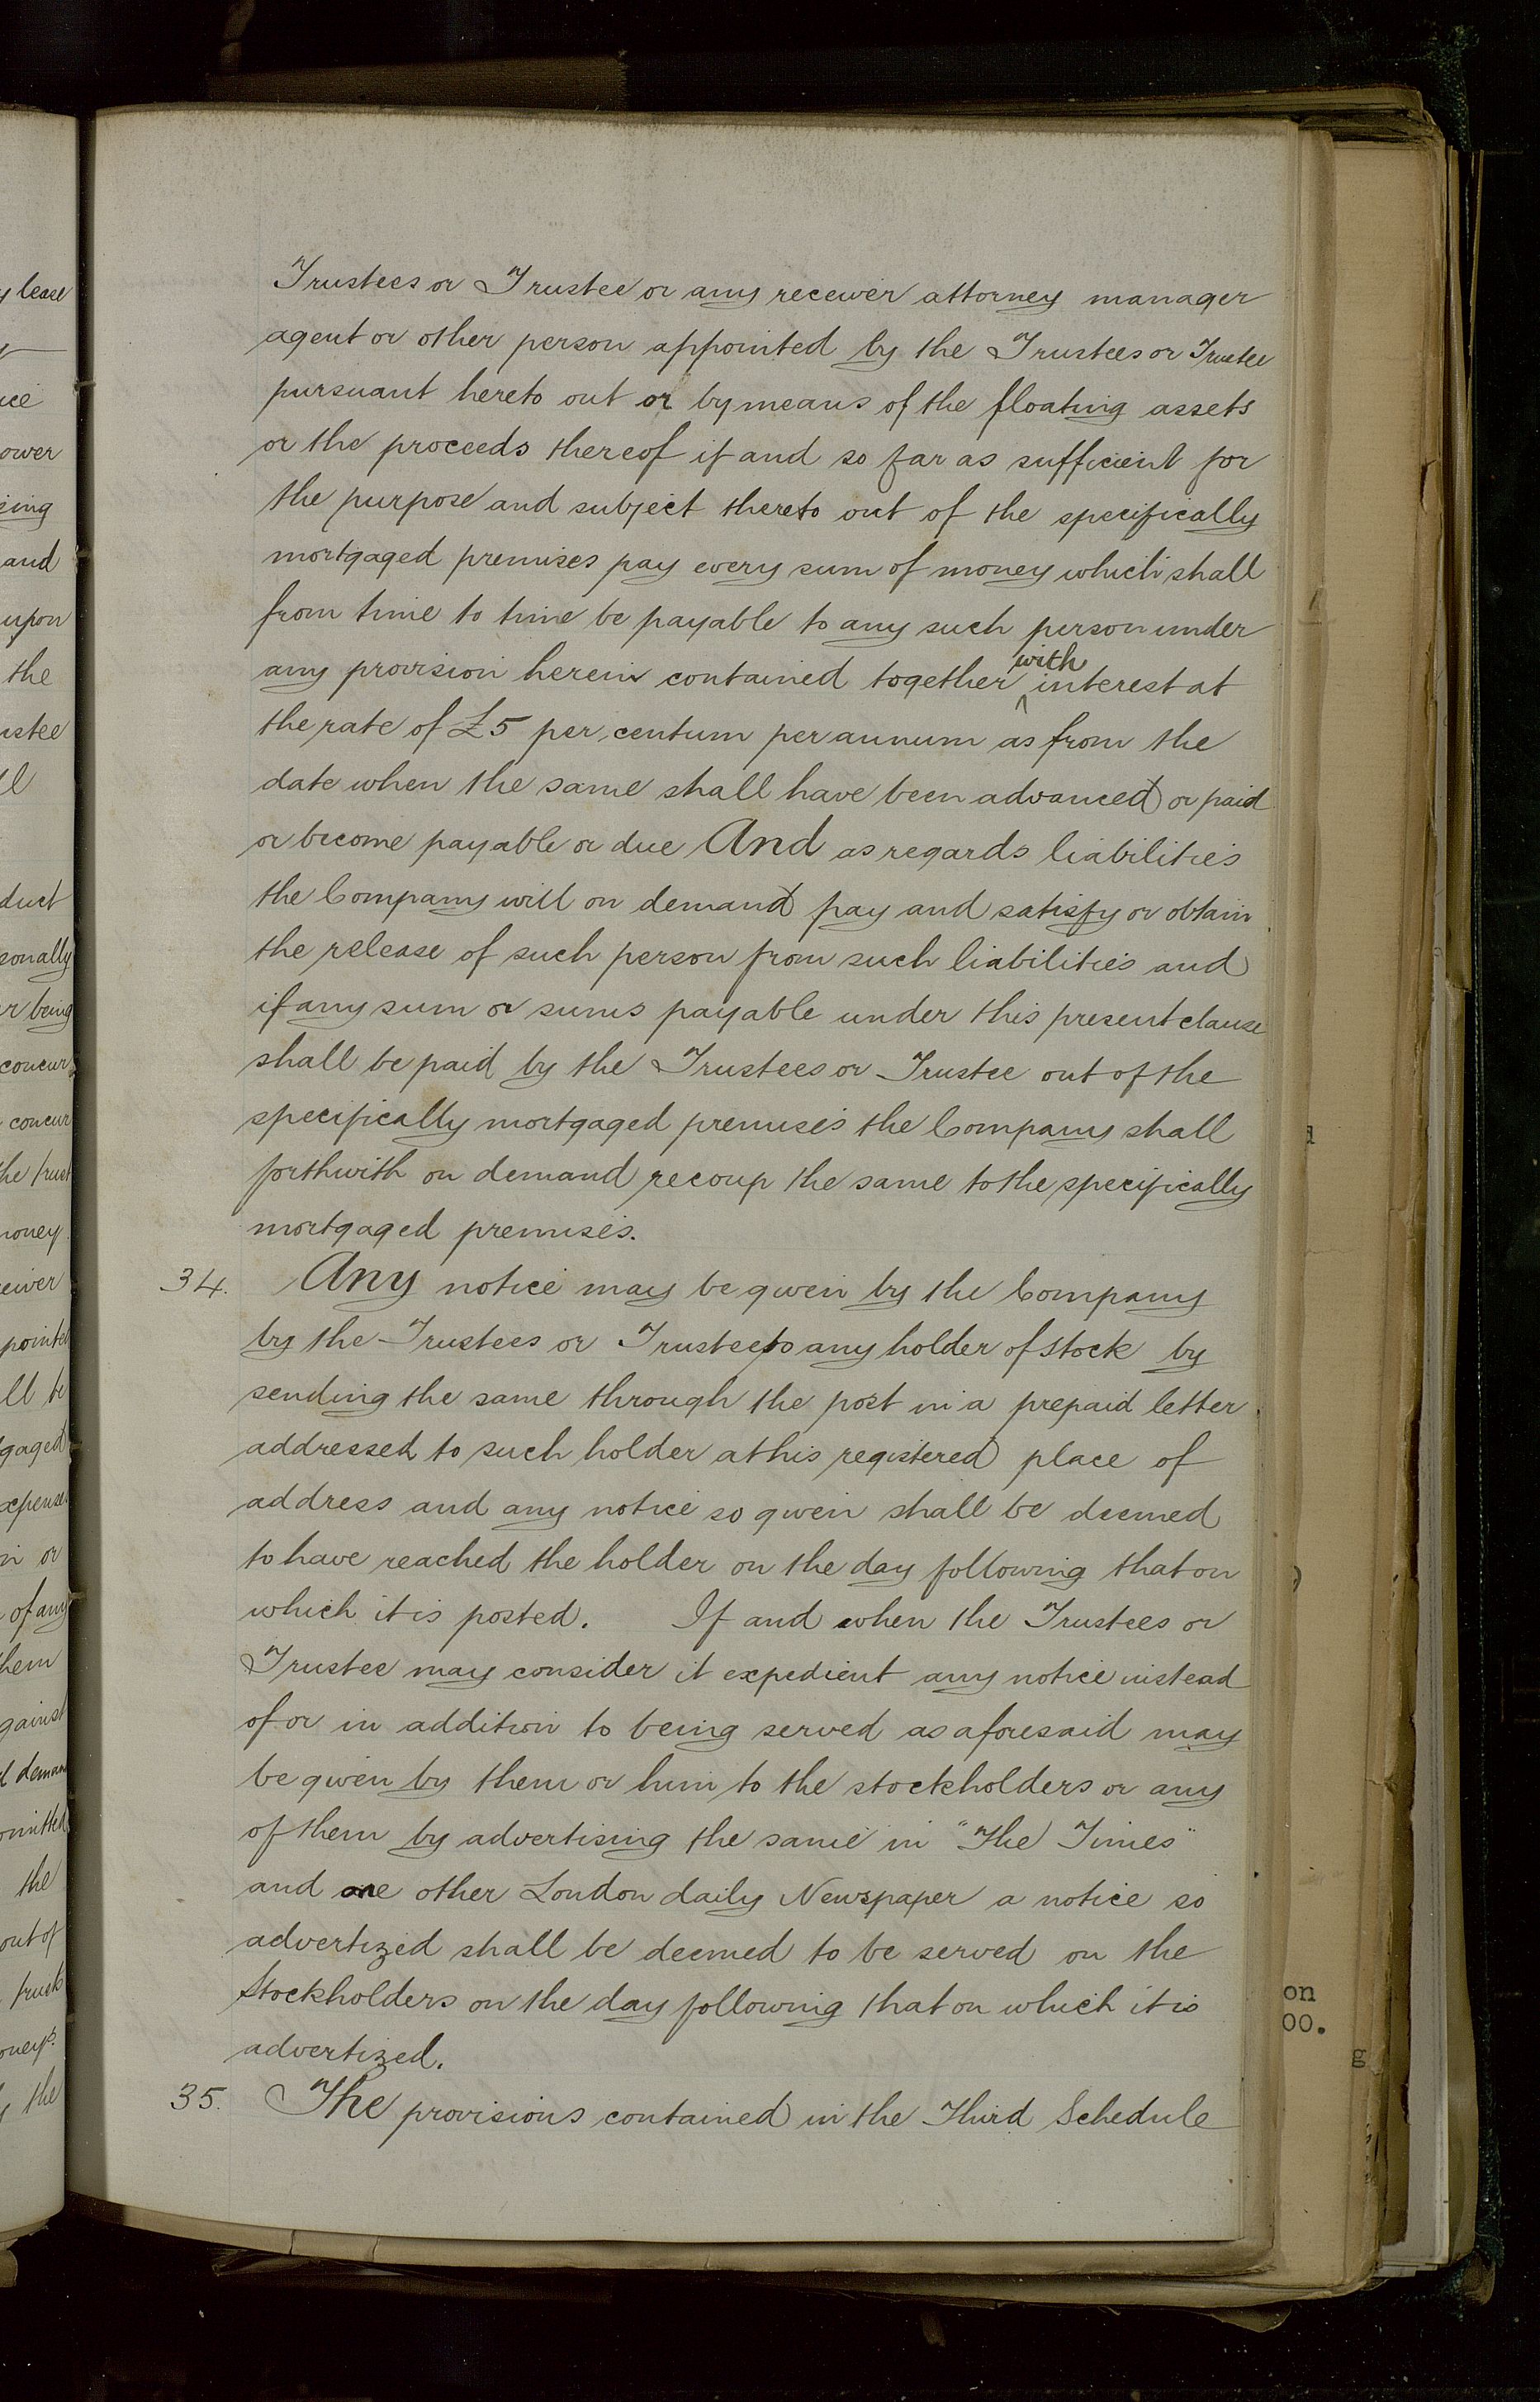 Trustees or Trustee or any receiver attorney manager
agent or other person appointed by the Trustees or Trustee
pursuant hereto out or by means of the floating assets
or the proceeds thereof if and so far as sufficient for
the purpose and subject thereto out of the specifically
mortgaged premises pay every sum of money which shall
from time to time be payable to any such person under
any provision herein contained together with interest at
the rate of £5 per centum per annum as from the
date when the same shall have been advanced or paid
or become payable or due And as regards liabilities
the Company will on demand pay and satisfy or obtain
the release of such person from such liabilities and
if any sum or sums payable under this present clause
shall be paid by the Trustees or Trustee out of the
specifically mortgaged premises the Company shall
forthwith on demand recoup the same to the specifically
mortgaged premises.
34. Any notice may be given by the Company
by the Trustees or Trustee to any holder of stock by
sending the same through the post in a prepaid letter
addressed to such holder at his registered place of
address and any notice so given shall be deemed
to have reached the holder on the day following that on
which it is posted. If and when the Trustees or
Trustee may consider it expedient any notice instead
of or in addition to being served as aforesaid may
be given by them or him to the stockholders or any
of them by advertising the same in "The Times"
and one other London daily Newspaper a notice so
advertized shall be deemed to be served on the
Stockholders on the day following that on which it is
advertized.
35. The provisions contained in the Third Schedule